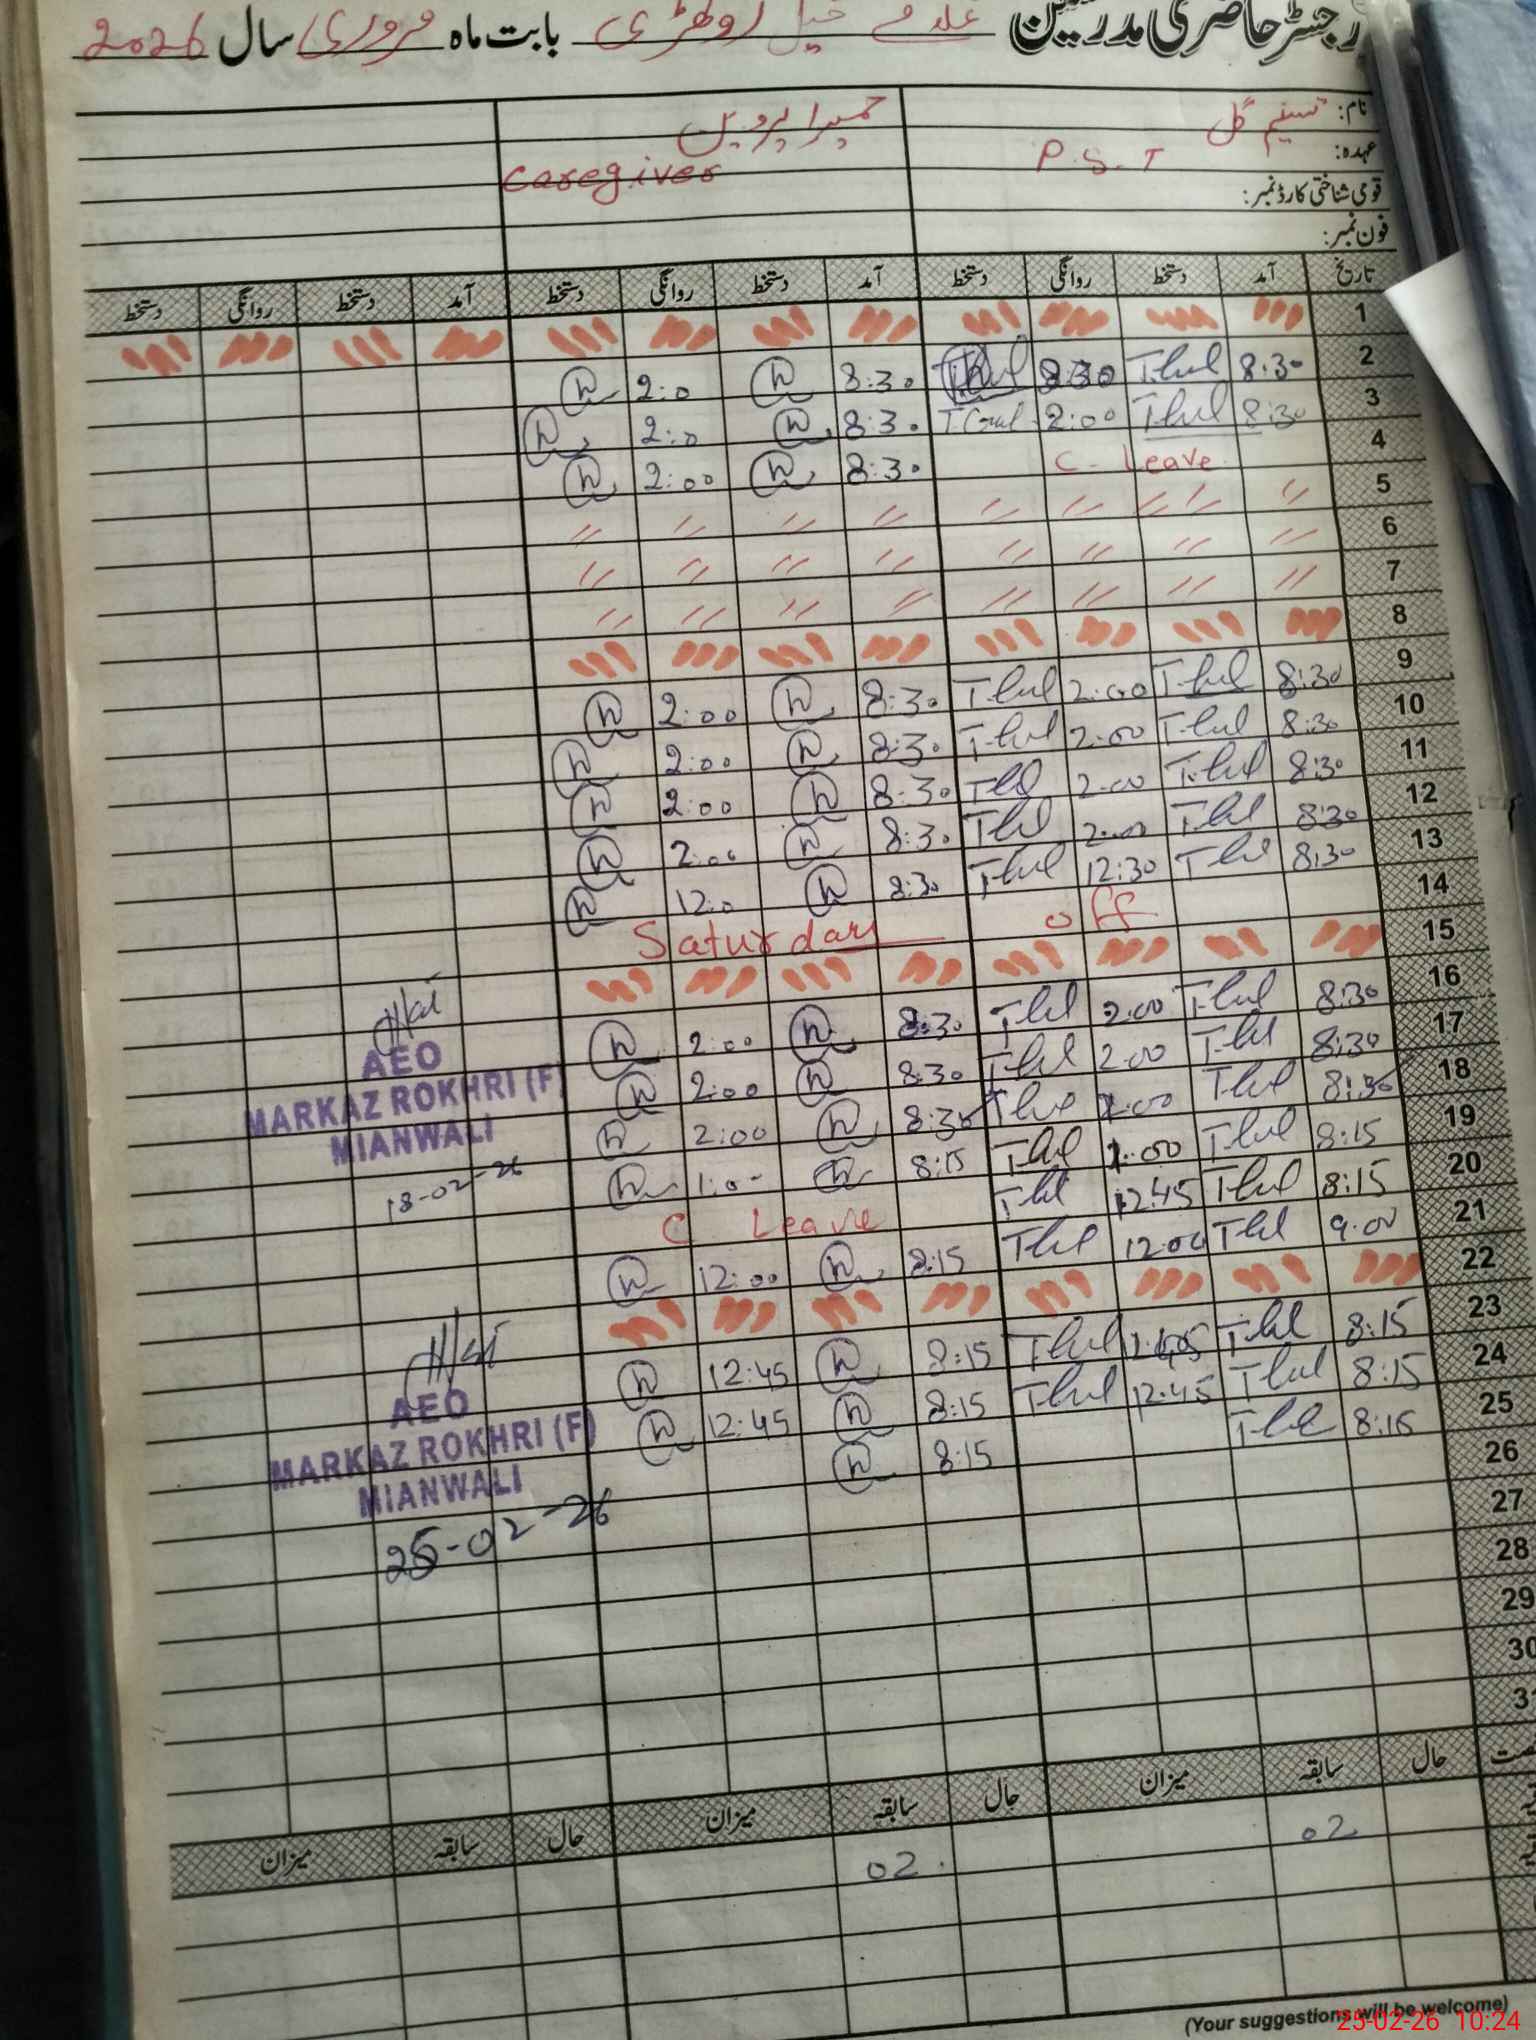 رجسٹر حاضری مدرسین علاقہ خیل روکھڑی بابت ماہ فروری سال 2026
نام: تسنیم گل حمیرا پروین
عہدہ: P.S.T Caregiver
قومی شناختی کارڈ نمبر:
فون نمبر:
تاریخ آمد دستخط روانگی دستخط آمد دستخط روانگی دستخط آمد دستخط روانگی دستخط
1
2 8:30 8:30 2:0
3 8:30 2:00 8:30 2:0
4 C-Leave 8:30 2:00
5
6
7
8
9 8:30 2:00 8:30 2:00
10 8:30 2:00 8:30 2:00
11 8:30 2:00 8:30 2:00
12 8:30 2:00 8:30 2:00
13 8:30 12:30 8:30 12:0
14 Saturday off
15
16 8:30 2:00 8:30 2:00
17 8:30 2:00 8:30 2:00
18 8:30 2:00 8:30 2:00
19 8:15 1:00 8:15 1:0
20 8:15 12:45 C Leave
21 9:00 12:00 8:15 12:00
22
23 8:15 8:15 12:45
24 8:15 12:45 8:15 12:45
25 8:15 8:15
26
27
28
29
30
AEO
MARKAZ ROKHRI (F)
MIANWALI
18-02-26
AEO
MARKAZ ROKHRI (F)
MIANWALI
25-02-26
حال سابقہ میزان حال سابقہ میزان حال سابقہ میزان
02 02
(Your suggestions will be welcome)
25-02-26 10:24